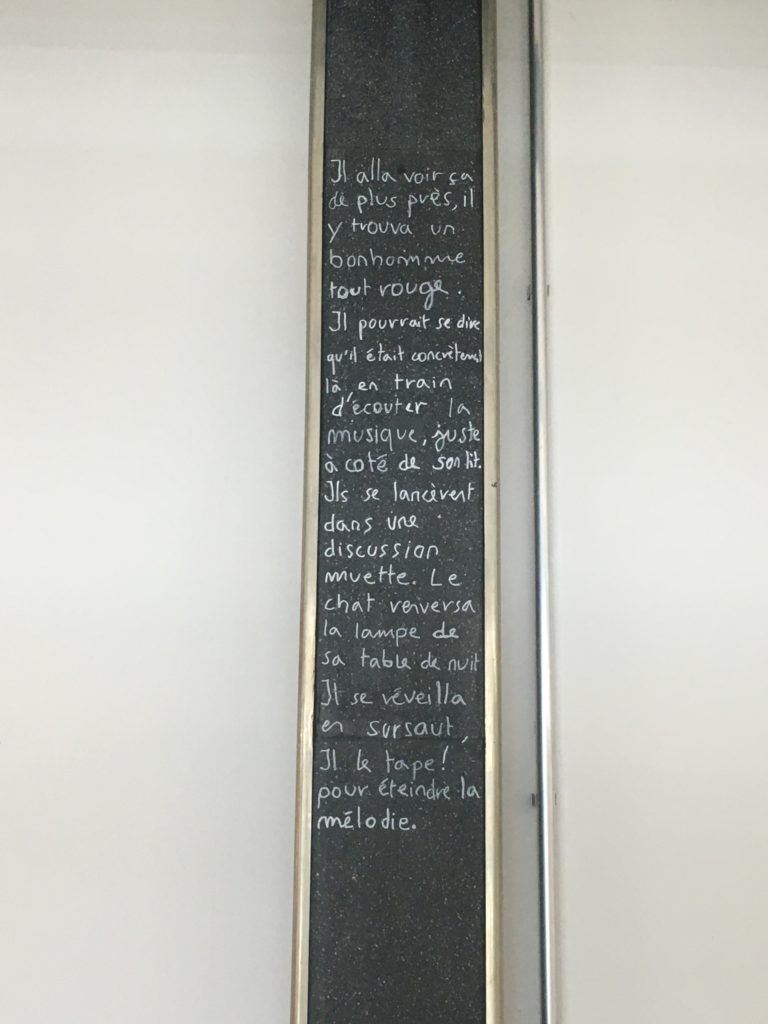 Il alla voir ça
de plus près, il
y trouva un
bonhomme
tout rouge.
Il pourrait se dire
qu'il était concrètement
là en train
d'écouter la
musique, juste
à coté de son lit.
Ils se lancèrent
dans une
discussion
muette. Le
chat renversa
la lampe de
sa table de nuit
Il se réveilla
en sursaut,
Il le tape!
pour éteindre la
mélodie.